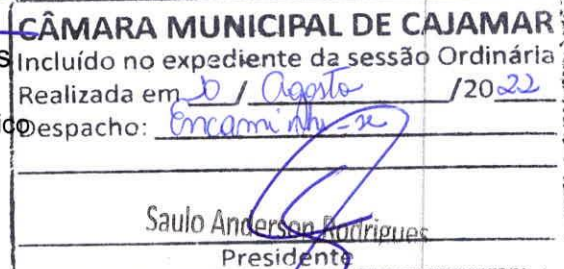 CÂMARA MUNICIPAL DE CAJAMAR
s Incluído no expediente da sessão Ordinária
Realizada em / Agosto /2022
ico Despacho: Encaminhe-se
Saulo Anderson Rodrigues
Presidente